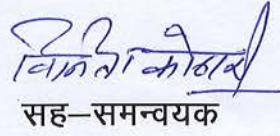 विनीता कोठारी
सह–समन्वयक